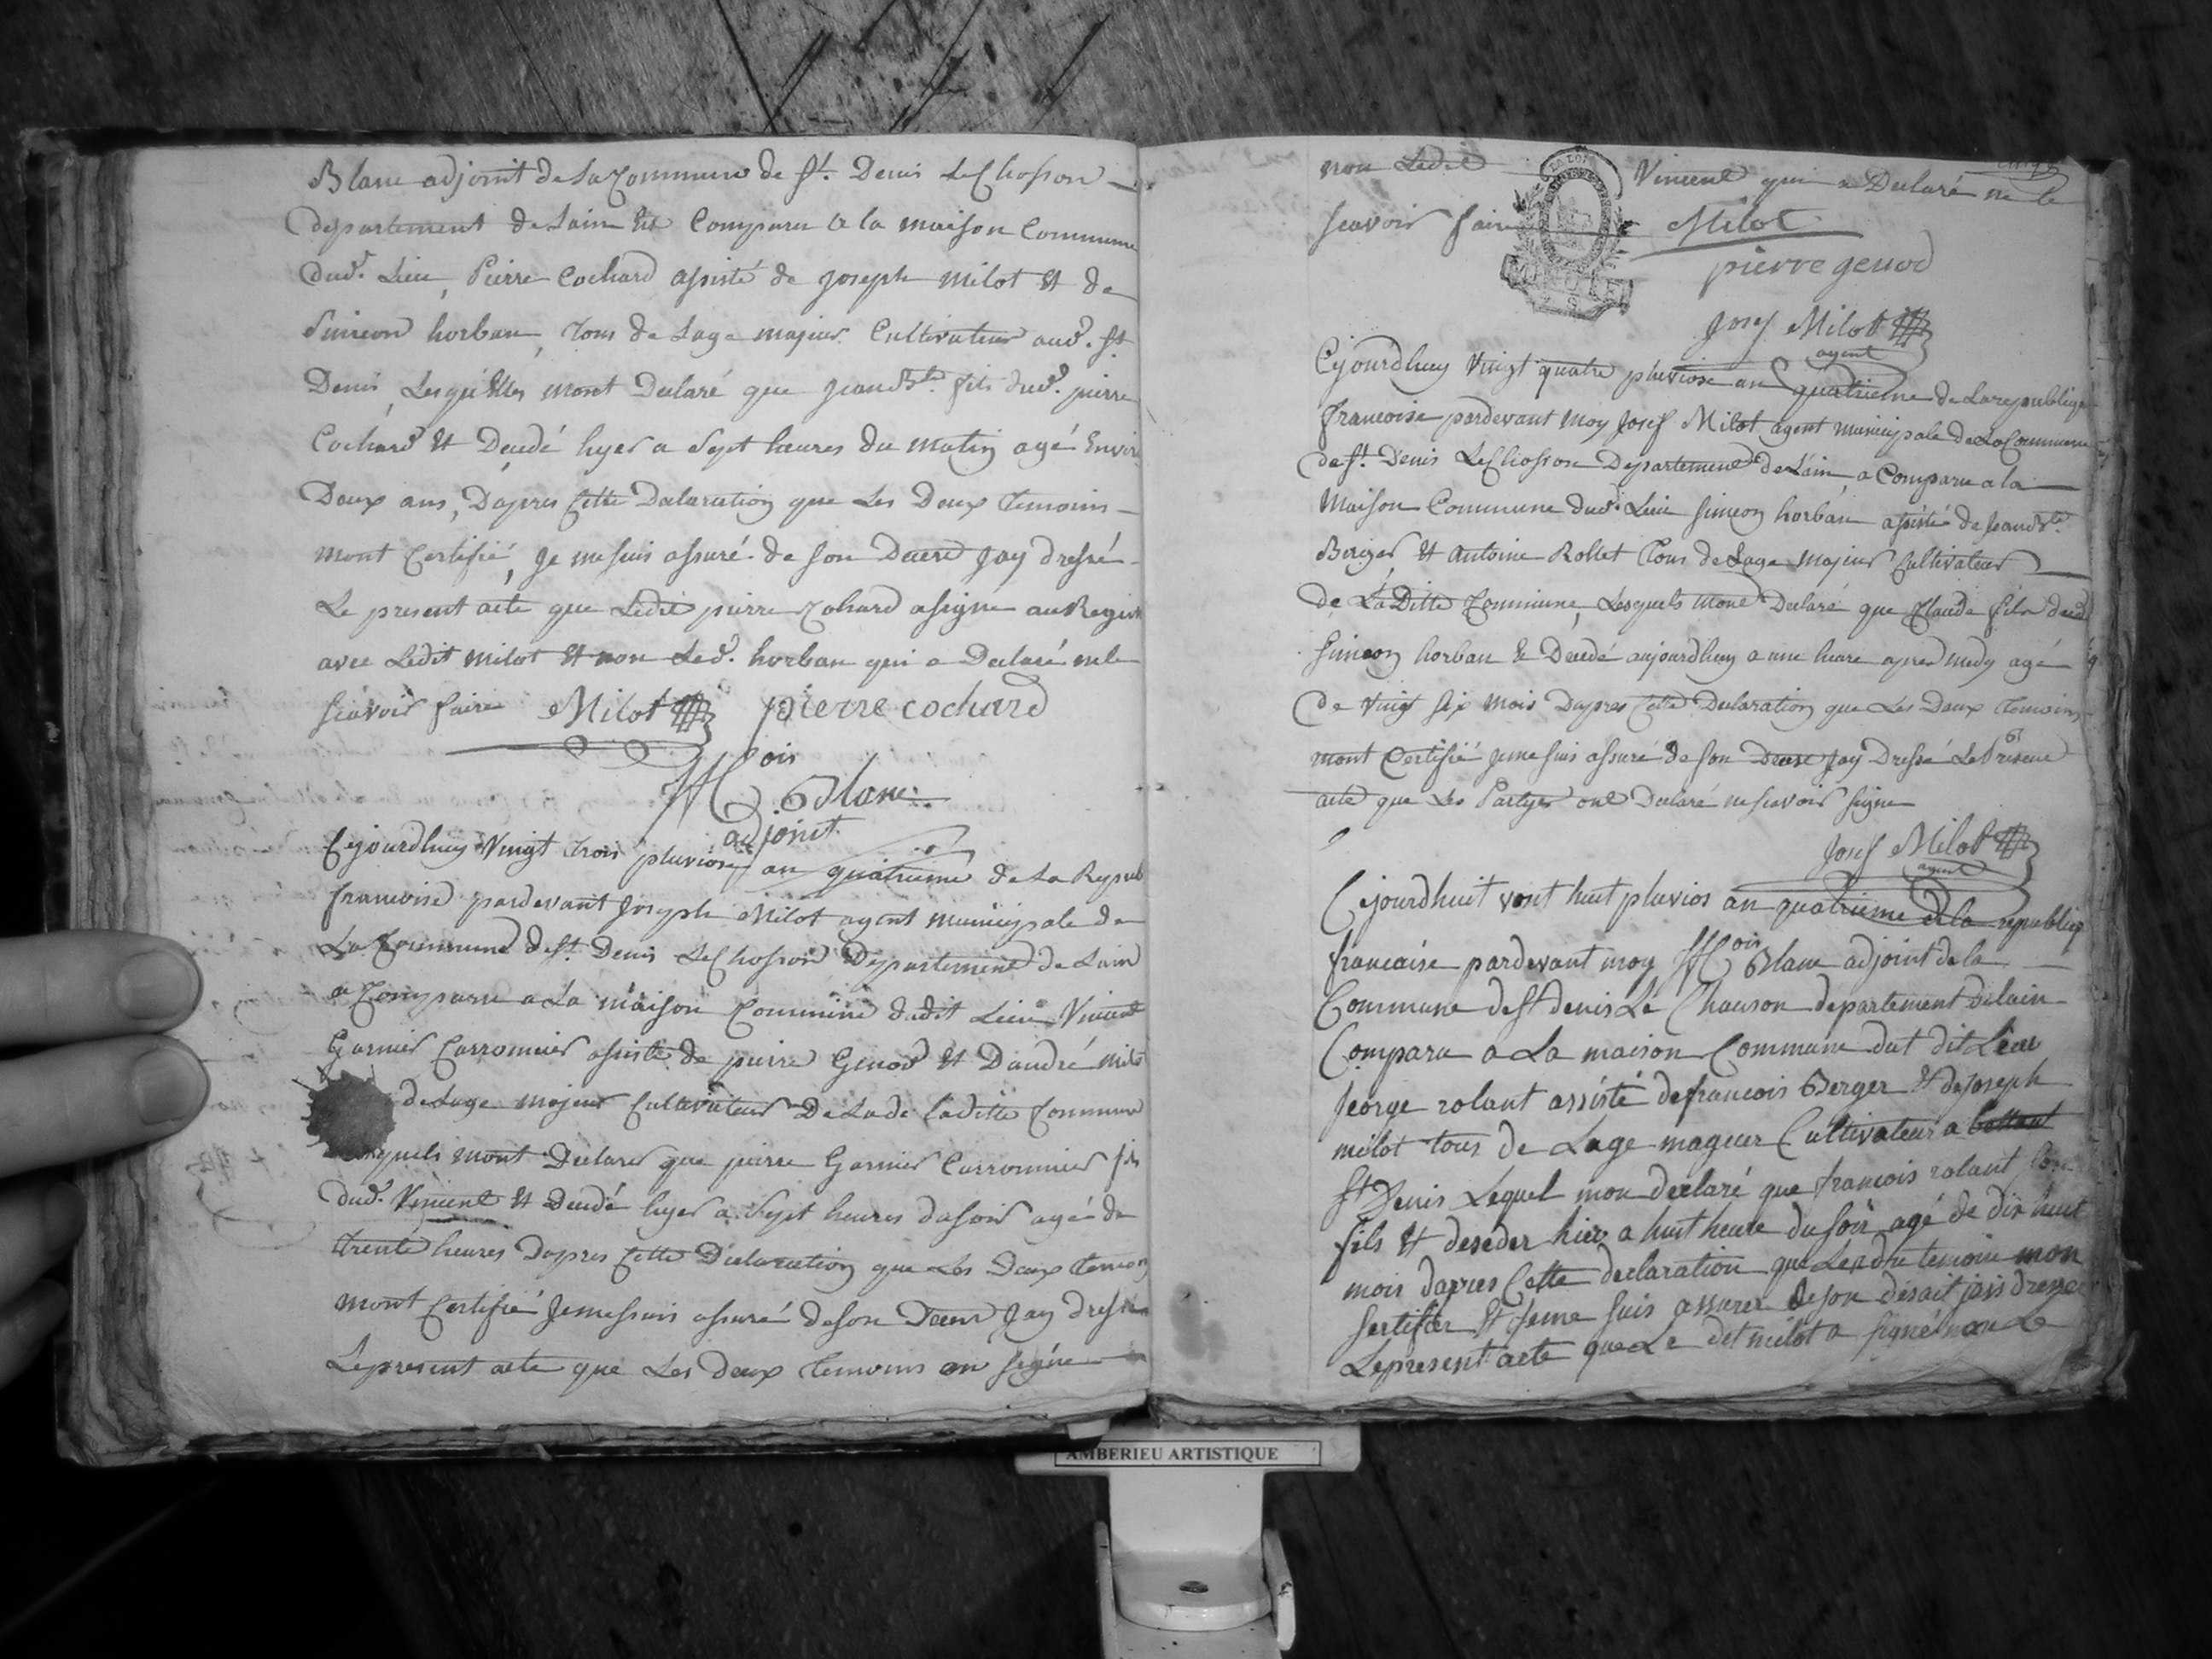 Blanc adjoint de La Commune de St. Denis Le Chosson
departement de Lain Est Comparu a la maison Commune
dud. Lieu, Pierre Cochard assisté de joseph milot Et de
Simeon horban, Tous de Lage majeur Cultivateur aud. St
Denis, Lesquelles mont Declaré que jean Bte. fils dud. pierre
Cochard Et Decedé hyer a Sept heures du matin agé Envir
Deux ans, Dapres Cette Declaration que Les Deux Temoins
mont Certifié, Je me suis assuré de son Deces Jay dressé
Le present acte que Ledit pierre Cohard a signé au Regist
avec Ledit milot Et non Led. horban qui a Declaré ne le
scavoir faire Milot pierre cochard
ois
Blanc
adjoint
Cejourdhuy Vingt trois pluviose an quatrieme de La Repub
francoise pardevant Joseph Milot agent municipale de
La Commune de St. Denis Le Chosson Departement de Lain
a Comparu a La maison Commune dudit Lieu Vincent
Garnier Carronnier assisté de pierre Genod Et Dandré milo
de Lage majeur Cultivateur De La de Laditte Commune
quels mont Declarer que pierre Garnier Carronnier fils
dud. Vincent Et Decedé hyer a Sept heures du soir agé de
trente heures Dapres Cette Declaration que Les Deux Temoin
mont Certifié Je me suis assuré de son Deces Jay dressé
Le present acte que Les deux Temoins on signé
non Ledit Vincent qui a Declaré ne le
scavoir faire Milot
pierre genod
Josef Milot
agent
Cejourdhuy Vingt quatre pluviose an quatrieme de La republique
francoise pardevant moy Josef Milot agent municipale de La Commune
de St. Denis Le Chosson Departement de Lain, a Comparu a la
Maison Commune dud. Lieu Simeon horban assisté de Jean Bte.
Berger Et Antoine Rollet Tous de Lage majeur Cultivateur
de La Ditte Commune, Lesquels mont Declaré que Claude fils dud
Simeon horban Et Decedé aujourdhuy a une heure apres midy agé
De Vingt six mois Dapres Cette Declaration que Les Deux Temoins
mont Certifié Je me suis assuré de son Deces Jay Dressé Le Present
acte que Les Partyes ont Declaré ne scavoir signe
Josef Milot
agent
Cejourdhuit vent huit pluvios an quatrieme de la republiq
francaise pardevant moy ois Blanc adjoint de la
Commune de St denis Le Chauson departement de lain
Comparu a La maison Commune dut dit Lieu
jeorge rolant assisté de francois Berger Et de Joseph
milot tous de Lage mageur Cultivateur a
St Denis Lequel mon declaré que francois rolant son
fils Et deseder hier a huit heure du soir agé de dix huit
mois dapres Cette declaration que Les dit temoin mon
sertifier Et Jeme suis assurer de son desait jais dresse
Lepresent acte que Le dit milot a signé non Le
AMBERIEU ARTISTIQUE